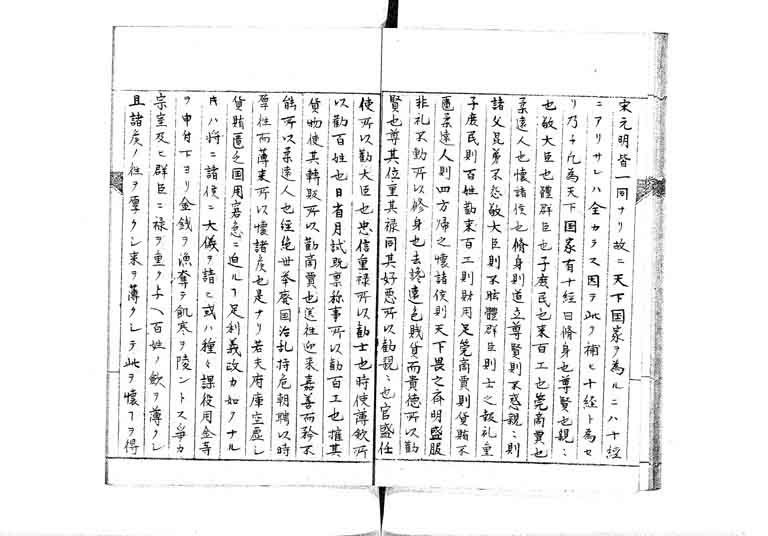 宋元明皆一同ナリ故ニ天下国家ヲ為ルニハ十経
ニアリサレハ全カラス因テ此ク補ヒ十経ト為セ
リ乃チ凡為天下国家有十経曰脩身也尊賢也親〻
也敬大臣也體群臣也子庶民也来百工也莞商賈也
柔遠人也懐諸侯也脩身則道立尊賢則不惑親〻則
諸父昆弟不怨敬大臣則不眩體群臣則士之報礼重
子庶民則百姓勧来百工則財用足莞商賈則貨賄不
匱柔遠人則四方帰之懐諸侯則天下畏之斉明盛服
非礼不動所以脩身也去讒遠色賎貨而貴徳所以勧
賢也尊其位重其禄同其好悪所以勧親〻也官盛任
使所以勧大臣也忠信重禄所以勧士也時使薄斂所
以勧百姓也日省月試既禀称事所以勧百工也 其
貨物使其転販所以勧商賈也送往迎来嘉善而矜不
能所以柔遠人也経絶世挙廃国治乱持危朝聘以時
厚往而薄来所以懐諸侯也是ナリ若夫府庫空虚シ
貨賄匱乏国用窘急ニ迫ルヿ足利義政カ如クナル
キハ将ニ諸侯ニ大儀ヲ諸ヒ或ハ種〻課役用金等
ヲ申付下ヨリ金銭ヲ漁奪テ飢寒ヲ陵ントス争カ
宗室及ヒ群臣ニ禄ヲ重ク与ヘ百姓ノ斂ヲ薄クシ
且諸侯ノ往ヲ厚クシ来ヲ薄クシテ此ヲ懐フヿヲ得